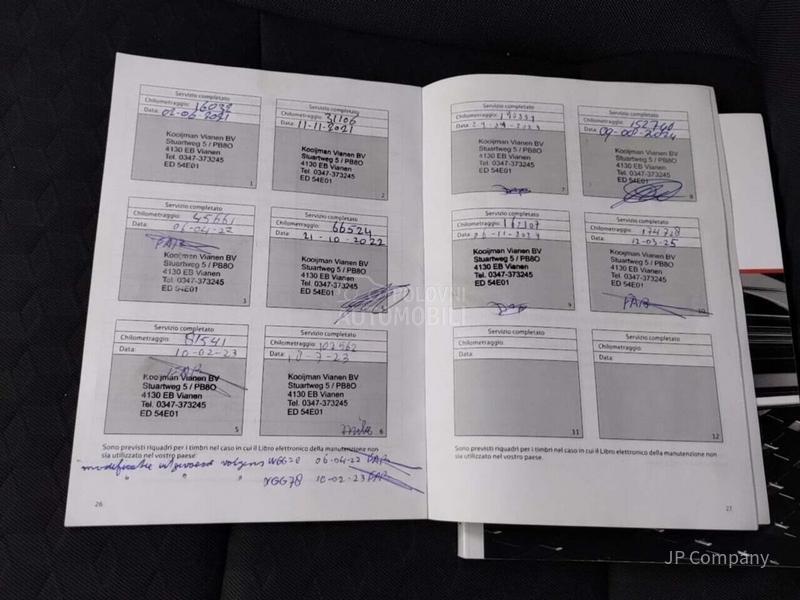 Servizio completato
Chilometraggio: 16032
Data: 02-06-2021
Kooijman Vianen BV
Stuartweg 5 / PB8O
4130 EB Vianen
Tel. 0347-373245
ED 54E01
1
Servizio completato
Chilometraggio: 31106
Data: 11-11-2021
Kooijman Vianen BV
Stuartweg 5 / PB8O
4130 EB Vianen
Tel. 0347-373245
ED 54E01
2
Servizio completato
Chilometraggio: 45661
Data: 06-04-22
PAB
Kooijman Vianen BV
Stuartweg 5 / PB8O
4130 EB Vianen
Tel. 0347-373245
ED 54E01
3
Servizio completato
Chilometraggio: 66524
Data: 21-10-2022
Kooijman Vianen BV
Stuartweg 5 / PB8O
4130 EB Vianen
Tel. 0347-373245
ED 54E01
Servizio completato
Chilometraggio: 81541
Data: 10-02-23
Kooijman Vianen BV
Stuartweg 5 / PB8O
4130 EB Vianen
Tel. 0347-373245
ED 54E01
5
Servizio completato
Chilometraggio: 102562
Data: 18-7-23
Kooijman Vianen BV
Stuartweg 5 / PB8O
4130 EB Vianen
Tel. 0347-373245
ED 54E01
6
Sono previsti riquadri per i timbri nel caso in cui il Libro elettronico della manutenzione non
sia utilizzato nel vostro paese.
modificatie uitgevoerd volgens 06-04-22 PAB
" " " 10-02-23 PAB
26
Servizio completato
Chilometraggio:
Data:
Kooijman Vianen BV
Stuartweg 5 / PB8O
4130 EB Vianen
Tel. 0347-373245
ED 54E01
7
Servizio completato
Chilometraggio: 152740
Data: 2024
Kooijman Vianen BV
Stuartweg 5 / PB8O
4130 EB Vianen
Tel. 0347-373245
ED 54E01
8
Servizio completato
Chilometraggio:
Data:
Kooijman Vianen BV
Stuartweg 5 / PB8O
4130 EB Vianen
Tel. 0347-373245
ED 54E01
9
Servizio completato
Chilometraggio: 174728
Data: 12-03-25
Kooijman Vianen BV
Stuartweg 5 / PB8O
4130 EB Vianen
Tel. 0347-373245
ED 54E01
PAB
10
Servizio completato
Chilometraggio:
Data:
11
Servizio completato
Chilometraggio:
Data:
12
Sono previsti riquadri per i timbri nel caso in cui il Libro elettronico della manutenzione non
sia utilizzato nel vostro paese.
27
POLOVNI
AUTOMOBILI
JP Company